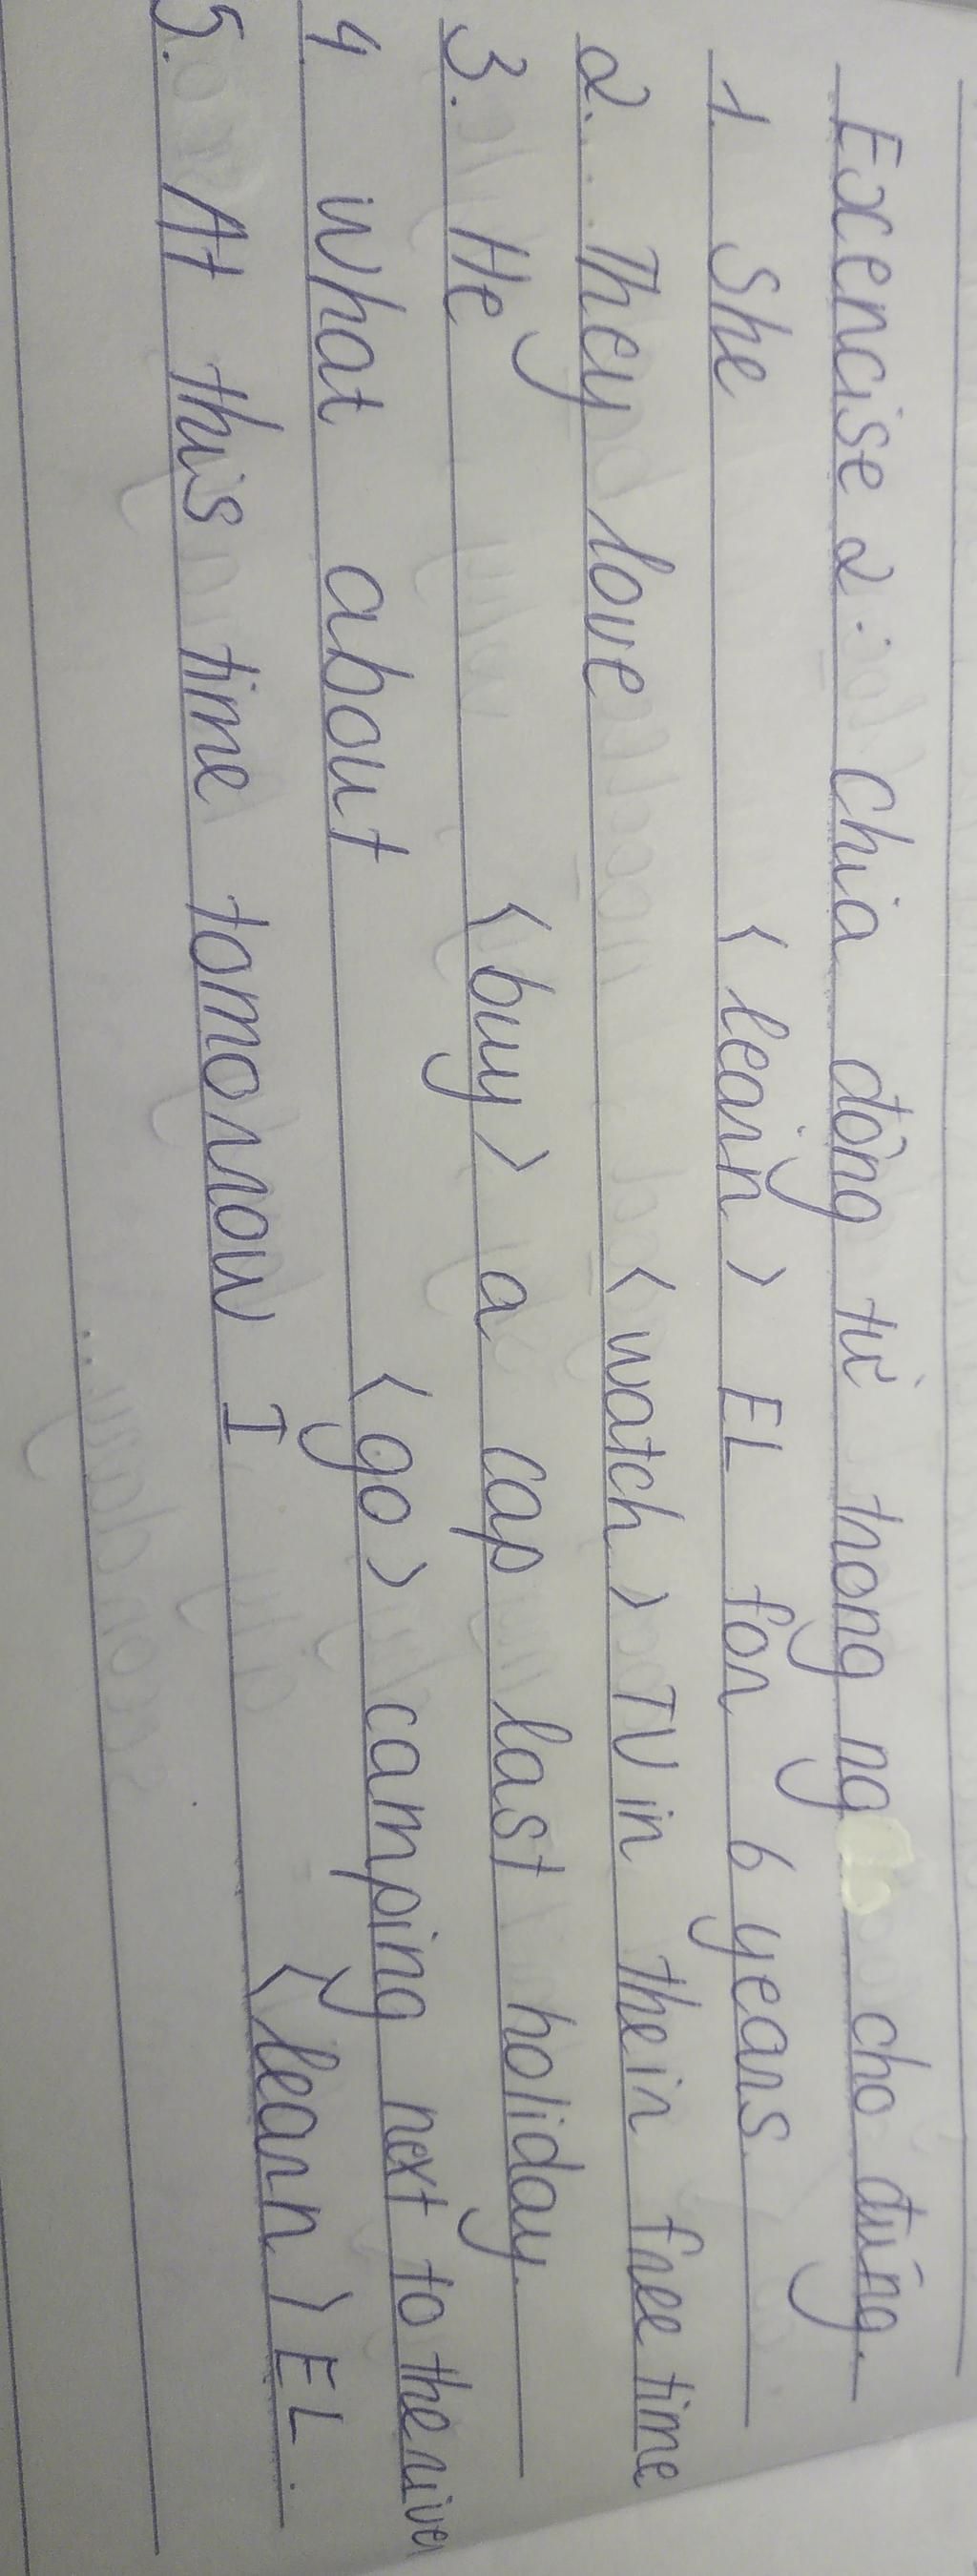 Exercise 2: Chia động từ trong ng cho đúng.
1. She <learn> EL for 6 years
2. They love <watch> TV in their free time
3. He <buy> a cap last holiday.
4. What about <go> camping next to the river
5. At this time tomorrow I <learn> EL.